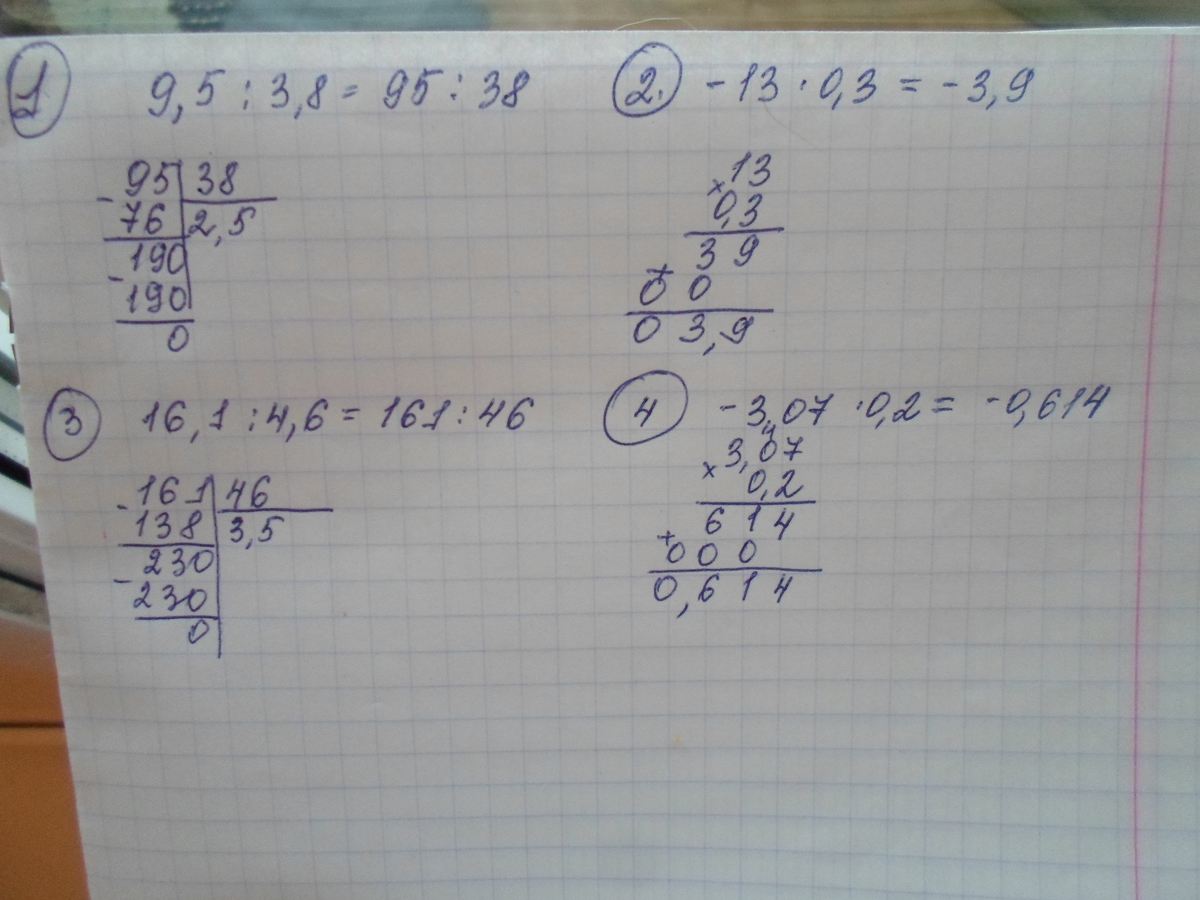 1 9,5 : 3,8 = 95 : 38
- 95 38
76 2,5
190
- 190
0
2. -13 · 0,3 = -3,9
13
× 0,3
3 9
+ 0 0
0 3,9
3 16,1 : 4,6 = 161 : 46
- 161 46
138 3,5
230
- 230
0
4 -3,07 · 0,2 = -0,614
3,07
× 0,2
6 1 4
+ 0 0 0
0,6 1 4